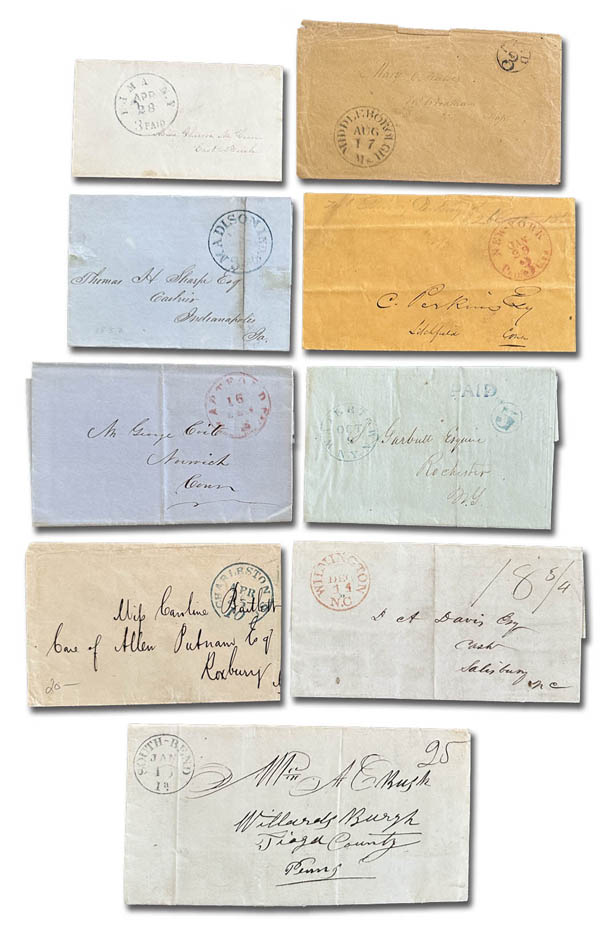 LIMA N.Y
APR
28
3 PAID
East
PAID
3
MIDDLEBOROUGH
AUG
17
Ms
MADISON IND.
Thomas H Sharpe Esq
Cashier
Indianapolis
Ia.
NEW YORK
JAN
29
3
C. Perkins Esq
Litchfield
Conn
HARTFORD
16
Mr George Coit
Norwich
Conn
PAID
5
OCT
N.Y.
Garbutt Esquire
Rochester
N.Y.
CHARLESTON
APR
10
Miss Caroline
Care of Allen Putnam Esq
Roxbury
20-
WILMINGTON
DEC
14
N.C
18 3/4
D A Davis Esq
Cash
Salisbury
NC
SOUTH-BEND
JAN
15
Ia
25
A E Bush
Willards Burgh
Tioga County
Penns